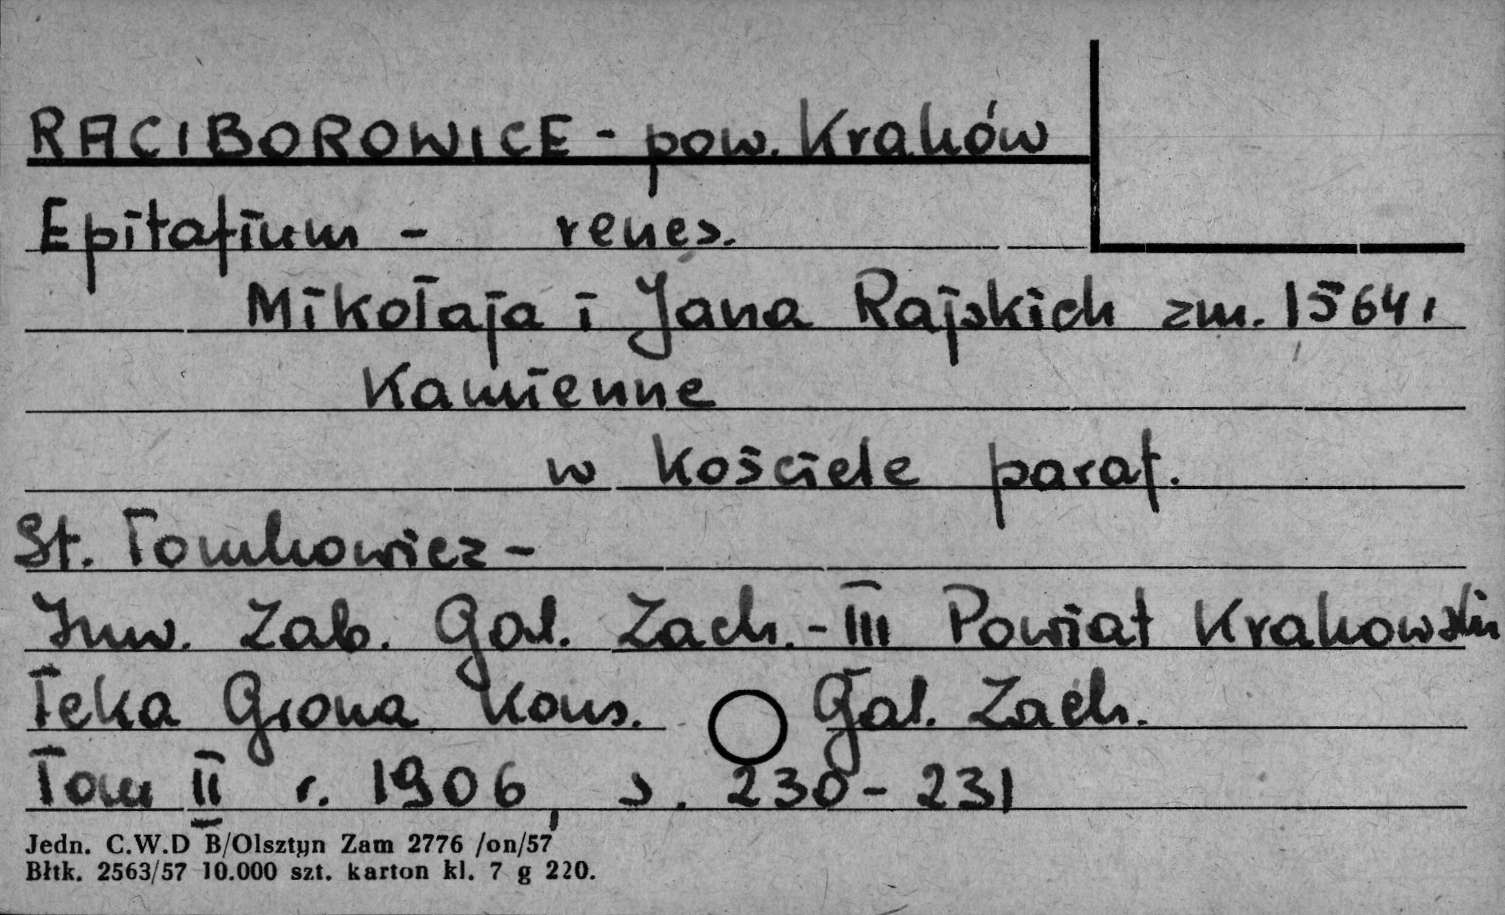 RACIBOROWICE - pow. Kraków
Epitafium - renes.
Mikołaja i Jana Rajskich zm. 1564 r
Kamienne
w kościele paraf.
St. Tomkowicz -
Inw. Zab. Gal. Zach. - III Powiat Krakowski
Teka Grona Kons. Gal. Zach.
Tom II r. 1906, s. 230 - 231
Jedn. C.W.D B/Olsztyn Zam 2776 /on/57
Błtk. 2563/57 10.000 szt. karton kl. 7 g 220.